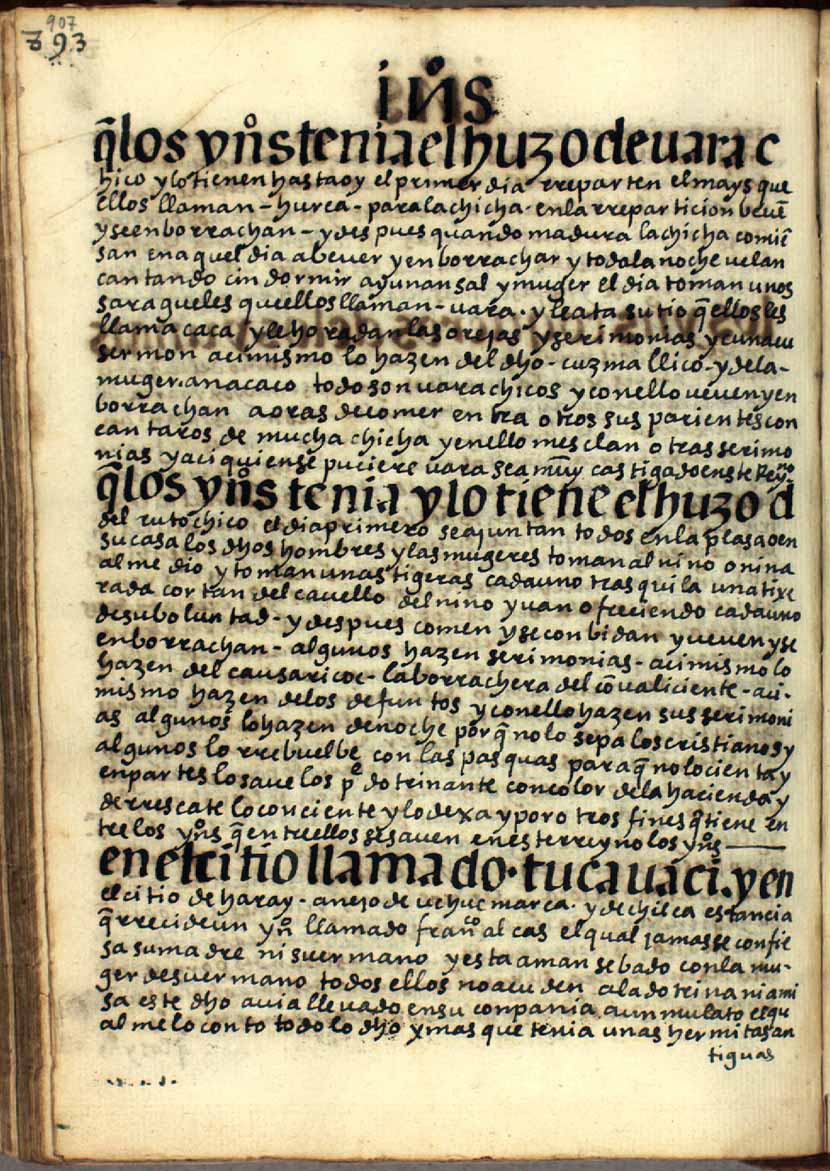 907
793
iños
q̃ los yn̊s tenia el huzo de uarac
hico y lo tienen hasta oy el primer dia rreparten el mays que
ellos llaman - hurca - para la chicha - en la rreparticion beuē
y se enborrachan - y despues quando madura la chicha comiē
san en aquel dia a beuer y enborrachar y toda la noche uelan
cantando cin dormir ayunan sal y muger el dia toman unos
saragueles que ellos llaman - uara - y le ata su tio q̃ ellos les
llama caca y le horadan las orejas y serimonias y
sermon acimismo lo hazen del dho - cuzmallico - y de la -
muger - anacaco todo son uarachicos y con ello ueuen y en
borrachan a oras de comer entra otros sus parientes con
cantaros de mucha chicha y en ello mesclan otras serimo
nias y aci quien se puciere uara sea muy castigado en este rey.º
q̃ los yn̊s tenia y lo tiene el huzo d
del rutochico el dia primero se ajuntan todos en la plasa o en
su casa los dhos hombres y las mugeres toman al nino o nina
al medio y toman unas tigeras cada uno trasquila una tixe
rada cortan del cauello del nino y uan ofreciendo cada uno
de su boluntad - y despues comen y se conbidan y ueuen y se
enborrachan - algunos hazen serimonias - acimismo lo
hazen del causaricoc - la borrachera del cōualiciente - aci -
mismo hazen de los defuntos y con ello hazen sus serimoni
as algunos lo hazen de noche porq̃ no lo sepa los cristianos y
algunos lo rrebuelbe con las pasquas para q̃ no lo cienta y
en partes lo saue los p.e dotrinante con color de la hacienda y
de rrescate lo conciente y lo dexa y por otros fines q̃ tiene en
tre los yn̊s q̃ entre ellos se sauen en este rreyno los yn̊s
en el citio llamado - tucauaci - y en
el citio de haray - anejo de uchucmarca - y de chilca estancia
q̃ rrecide un yn̊ llamado fran.co alcas el qual jamas se confie
sa su madre ni su ermano y esta amansebado con la mu -
ger de su ermano todos ellos no acuden a la dotrina ni a mi
sa este dho auia lleuado en su conpania a un mulato el qu
al me lo conto todo lo dho y mas que tenia unas hermitas an
tiguas